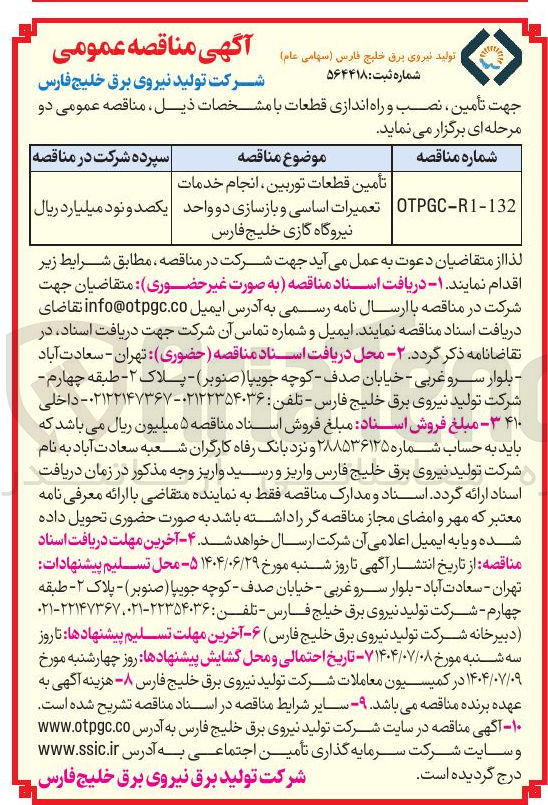 آگهی مناقصه عمومی
تولید نیروی برق خلیج فارس (سهامی عام)
شماره ثبت: ۵۶۴۴۱۸
شرکت تولید نیروی برق خلیج‌فارس
جهت تأمین، نصب و راه‌اندازی قطعات با مشخصات ذیل، مناقصه عمومی دو
مرحله‌ای برگزار می‌نماید.
شماره مناقصه موضوع مناقصه سپرده شرکت در مناقصه
تأمین قطعات توربین، انجام خدمات
OTPGC-R1-132 تعمیرات اساسی و بازسازی دو واحد یکصد و نود میلیارد ریال
نیروگاه گازی خلیج‌فارس
لذا از متقاضیان دعوت به عمل می‌آید جهت شرکت در مناقصه، مطابق شرایط زیر
اقدام نمایند. ۱- دریافت اسناد مناقصه (به صورت غیرحضوری): متقاضیان جهت
شرکت در مناقصه با ارسال نامه رسمی به آدرس ایمیل info@otpgc.co تقاضای
دریافت اسناد مناقصه نمایند. ایمیل و شماره تماس آن شرکت جهت دریافت اسناد، در
تقاضانامه ذکر گردد. ۲- محل دریافت اسناد مناقصه (حضوری): تهران - سعادت‌آباد
- بلوار سرو غربی - خیابان صدف - کوچه جویبا (صنوبر) - پلاک ۲ - طبقه چهارم -
شرکت تولید نیروی برق خلیج فارس - تلفن: ۰۲۱۲۲۳۵۴۰۳۶-۰۲۱۲۲۱۴۷۳۶۷ - داخلی
۴۱۰ ۳- مبلغ فروش اسناد: مبلغ فروش اسناد مناقصه ۵ میلیون ریال می باشد که
باید به حساب شماره ۲۸۸۵۳۶۱۳۵ و نزد بانک رفاه کارگران شعبه سعادت‌آباد به نام
شرکت تولید نیروی برق خلیج فارس واریز و رسید واریز وجه مذکور در زمان دریافت
اسناد ارائه گردد. اسناد و مدارک مناقصه فقط به نماینده متقاضی با ارائه معرفی نامه
معتبر که مهر و امضای مجاز مناقصه گر را داشته باشد به صورت حضوری تحویل داده
شده و یا به ایمیل اعلامی آن شرکت ارسال خواهد شد. ۴- آخرین مهلت دریافت اسناد
مناقصه: از تاریخ انتشار آگهی تا روز شنبه مورخ ۱۴۰۴/۰۶/۲۹ ۵- محل تسلیم پیشنهادات:
تهران - سعادت‌آباد - بلوار سرو غربی - خیابان صدف - کوچه جویبا (صنوبر) - پلاک ۲ - طبقه
چهارم - شرکت تولید نیروی برق خلیج فارس - تلفن: ۰۲۱-۲۲۳۵۴۰۳۶، ۰۲۱-۲۲۱۴۷۳۶۷
(دبیرخانه شرکت تولید نیروی برق خلیج فارس) ۶- آخرین مهلت تسلیم پیشنهادها: تا روز
سه شنبه مورخ ۱۴۰۴/۰۷/۰۸ ۷- تاریخ احتمالی و محل گشایش پیشنهادها: روز چهارشنبه مورخ
۱۴۰۴/۰۷/۰۹ در کمیسیون معاملات شرکت تولید نیروی برق خلیج فارس ۸- هزینه آگهی به
عهده برنده مناقصه می باشد. ۹- سایر شرایط مناقصه در اسناد مناقصه تشریح شده است.
۱۰- آگهی مناقصه در سایت شرکت تولید نیروی برق خلیج فارس به آدرس www.otpgc.co
و سایت شرکت سرمایه گذاری تأمین اجتماعی به آدرس www.ssic.ir
درج گردیده است.
شرکت تولید برق نیروی برق خلیج‌فارس